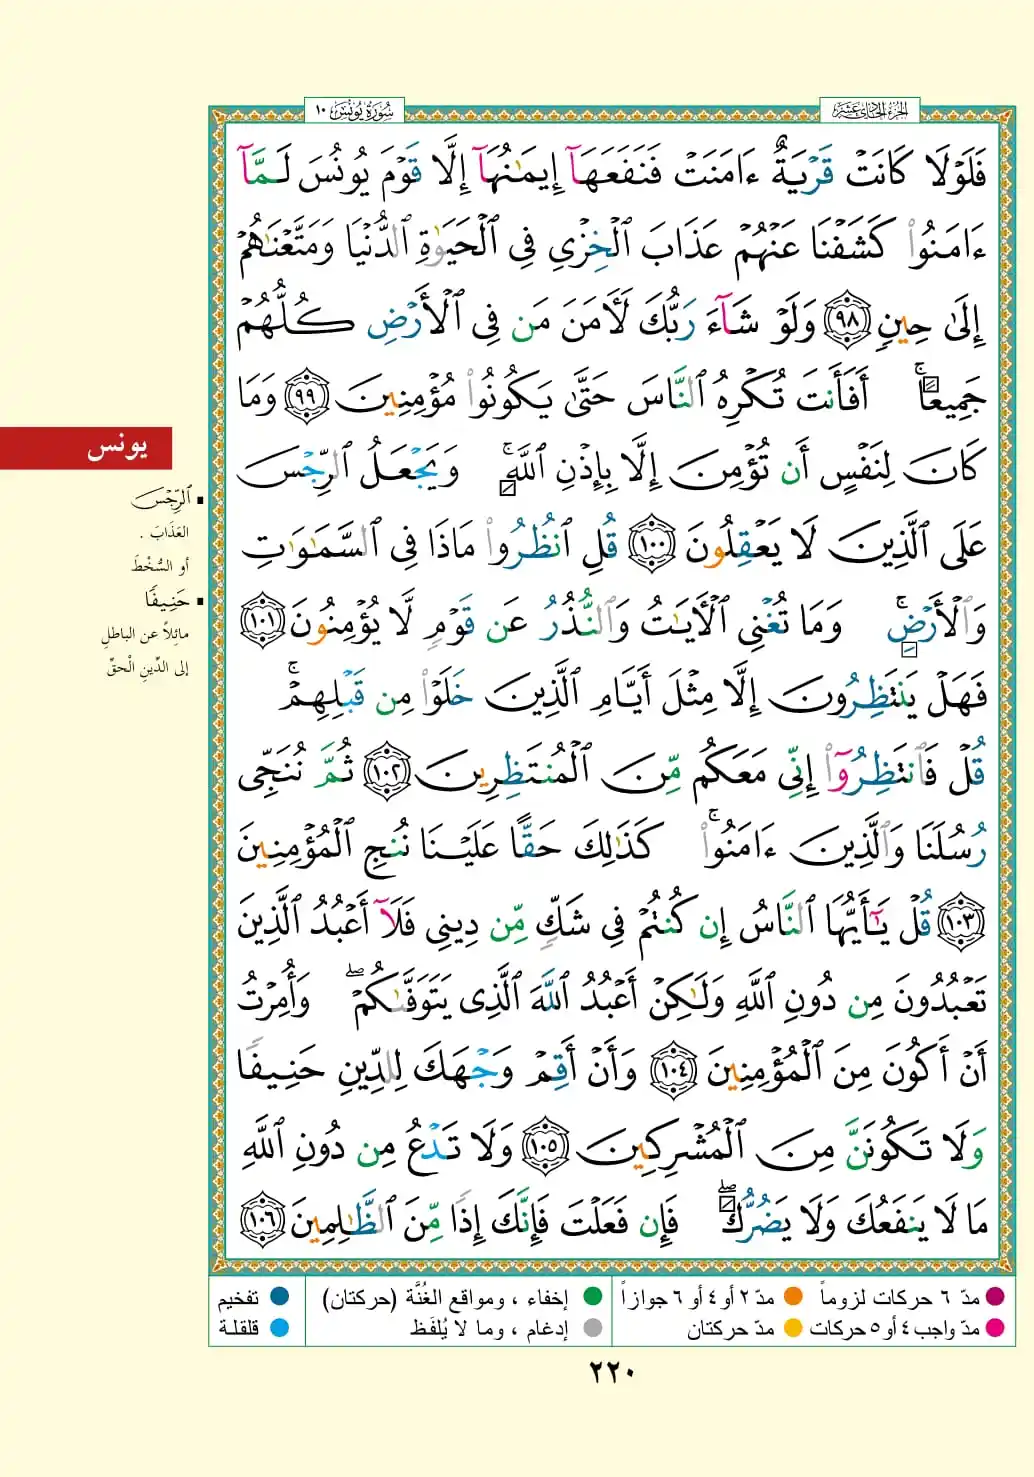 سُورَةُ يُونُسَ ١٠
الجُزءُ الحَادِى عَشَرَ
فَلَوْلَا كَانَتْ قَرْيَةٌ ءَامَنَتْ فَنَفَعَهَآ إِيمَـٰنُهَآ إِلَّا قَوْمَ يُونُسَ لَمَّآ
ءَامَنُوا۟ كَشَفْنَا عَنْهُمْ عَذَابَ ٱلْخِزْىِ فِى ٱلْحَيَوٰةِ ٱلدُّنْيَا وَمَتَّعْنَـٰهُمْ
إِلَىٰ حِينٍ ٩٨ وَلَوْ شَآءَ رَبُّكَ لَـَٔامَنَ مَن فِى ٱلْأَرْضِ كُلُّهُمْ
جَمِيعًا ۚ أَفَأَنتَ تُكْرِهُ ٱلنَّاسَ حَتَّىٰ يَكُونُوا۟ مُؤْمِنِينَ ٩٩ وَمَا
كَانَ لِنَفْسٍ أَن تُؤْمِنَ إِلَّا بِإِذْنِ ٱللَّهِ ۚ وَيَجْعَلُ ٱلرِّجْسَ
عَلَى ٱلَّذِينَ لَا يَعْقِلُونَ ١٠٠ قُلِ ٱنظُرُوا۟ مَاذَا فِى ٱلسَّمَـٰوَٰتِ
وَٱلْأَرْضِ ۚ وَمَا تُغْنِى ٱلْـَٔايَـٰتُ وَٱلنُّذُرُ عَن قَوْمٍ لَّا يُؤْمِنُونَ ١٠١
فَهَلْ يَنتَظِرُونَ إِلَّا مِثْلَ أَيَّامِ ٱلَّذِينَ خَلَوْا۟ مِن قَبْلِهِمْ ۚ
قُلْ فَٱنتَظِرُوٓا۟ إِنِّى مَعَكُم مِّنَ ٱلْمُنتَظِرِينَ ١٠٢ ثُمَّ نُنَجِّى
رُسُلَنَا وَٱلَّذِينَ ءَامَنُوا۟ ۚ كَذَٰلِكَ حَقًّا عَلَيْنَا نُنجِ ٱلْمُؤْمِنِينَ
١٠٣ قُلْ يَـٰٓأَيُّهَا ٱلنَّاسُ إِن كُنتُمْ فِى شَكٍّ مِّن دِينِى فَلَآ أَعْبُدُ ٱلَّذِينَ
تَعْبُدُونَ مِن دُونِ ٱللَّهِ وَلَـٰكِنْ أَعْبُدُ ٱللَّهَ ٱلَّذِى يَتَوَفَّىٰكُمْ ۖ وَأُمِرْتُ
أَنْ أَكُونَ مِنَ ٱلْمُؤْمِنِينَ ١٠٤ وَأَنْ أَقِمْ وَجْهَكَ لِلدِّينِ حَنِيفًا
وَلَا تَكُونَنَّ مِنَ ٱلْمُشْرِكِينَ ١٠٥ وَلَا تَدْعُ مِن دُونِ ٱللَّهِ
مَا لَا يَنفَعُكَ وَلَا يَضُرُّكَ ۖ فَإِن فَعَلْتَ فَإِنَّكَ إِذًا مِّنَ ٱلظَّـٰلِمِينَ ١٠٦
يونس
ٱلرِّجْسَ
العَذَابَ .
أو السُّخْطَ
حَنِيفًا
مائِلاً عن الباطلِ
إلى الدِّينِ الْحقِّ
مدّ ٦ حركات لزوماً
مدّ ٢ أو ٤ أو ٦ جوازاً
إخفاء ، ومواقع الغُنَّة (حركتان)
تفخيم
مدّ واجب ٤ أو ٥ حركات
مدّ حركتان
إدغام ، وما لا يُلفَظ
قلقلة
٢٢٠